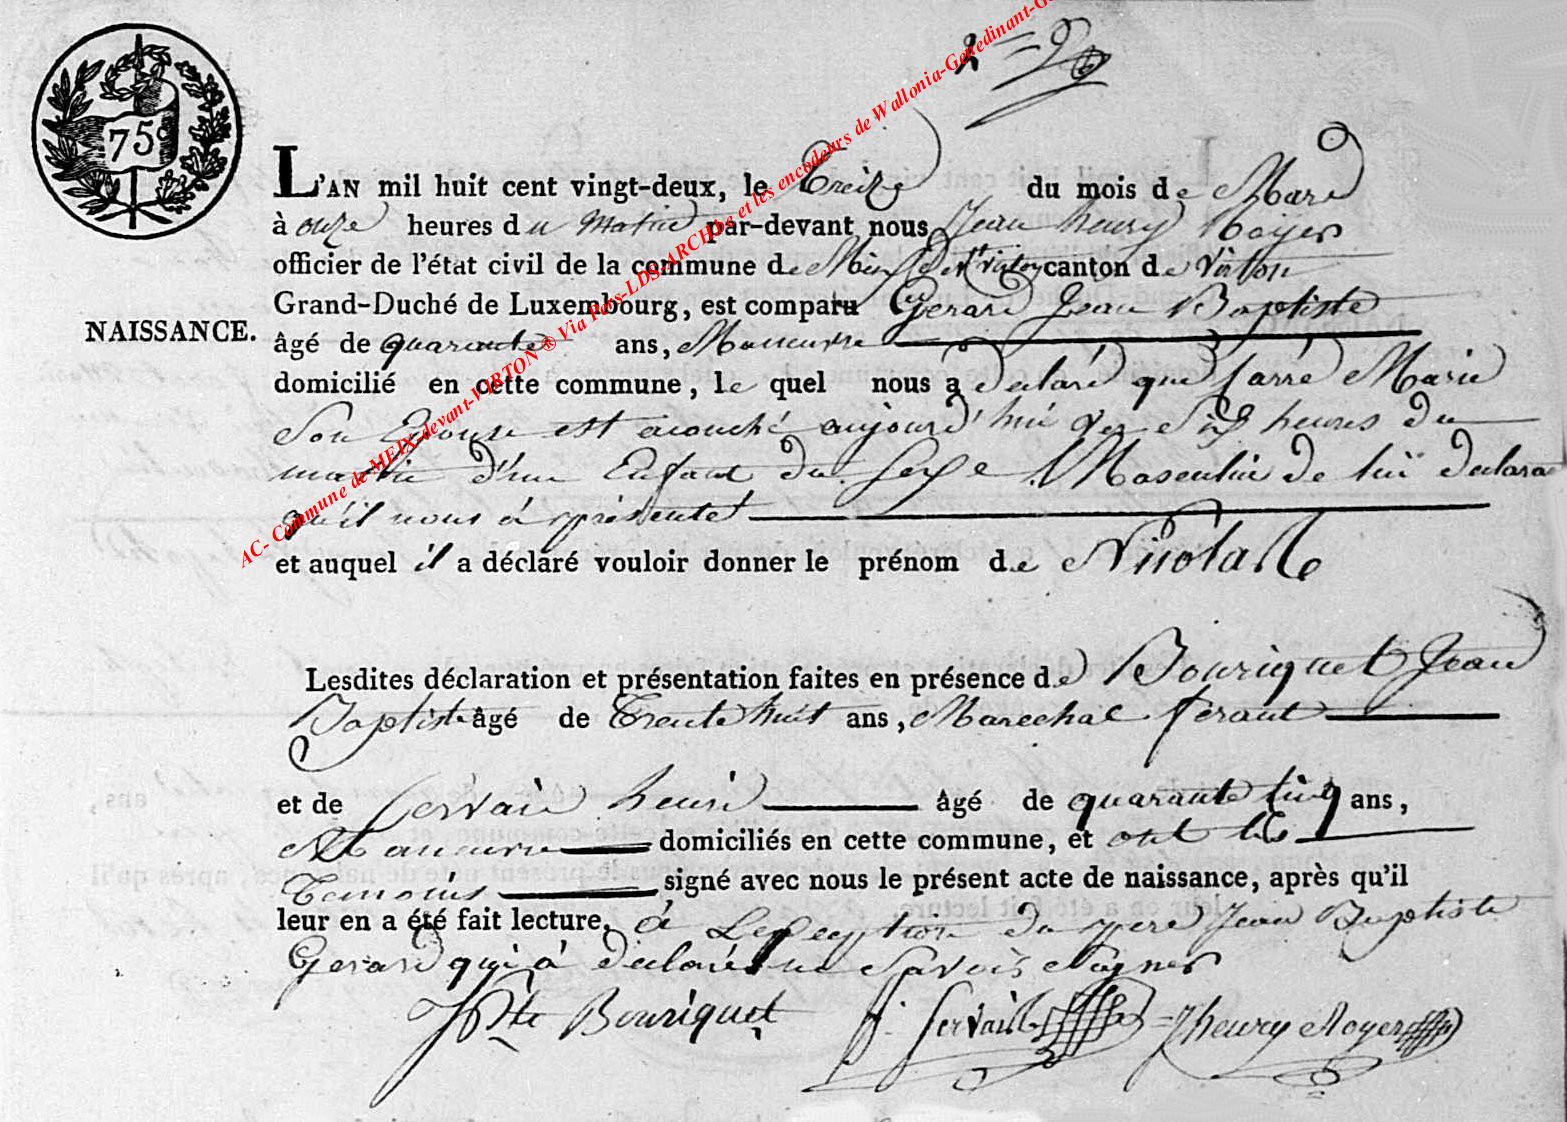 75c
AC- Commune de MEIX-devant-VIRTON ® Via Pays-LDS-ARCHbe et les encodeurs de Wallonia-Genedinant-G
L'AN mil huit cent vingt-deux, le treize du mois de Mars
à onze heures du Matin par-devant nous Jean henry Noyer
officier de l'état civil de la commune de Meix dev't Virton canton de Virton
Grand-Duché de Luxembourg, est comparu Gerard Jean Baptiste
NAISSANCE.
âgé de quarente ans, Maneuvre
domicilié en cette commune, le quel nous a declaré que Marie
Son Epouse est acouché aujourd'hui Six heures du
matin d'un Enfant du Sexe Masculin de lui declarant
qu'il nous à présenté
et auquel il a déclaré vouloir donner le prénom de Nicolas
Lesdites déclaration et présentation faites en présence de Bouriquet Jean
Baptiste âgé de trente huit ans, Marechal ferant
et de Servais henri âgé de quarante cinq ans,
Maneuvre domiciliés en cette commune, et ont les
temoins signé avec nous le présent acte de naissance, après qu'il
leur en a été fait lecture, à Lexception du pere Jean Baptiste
Gerard qui à declaré ne Savoir Signer
JBte Bouriquet h. Servais Jhenry Noyer